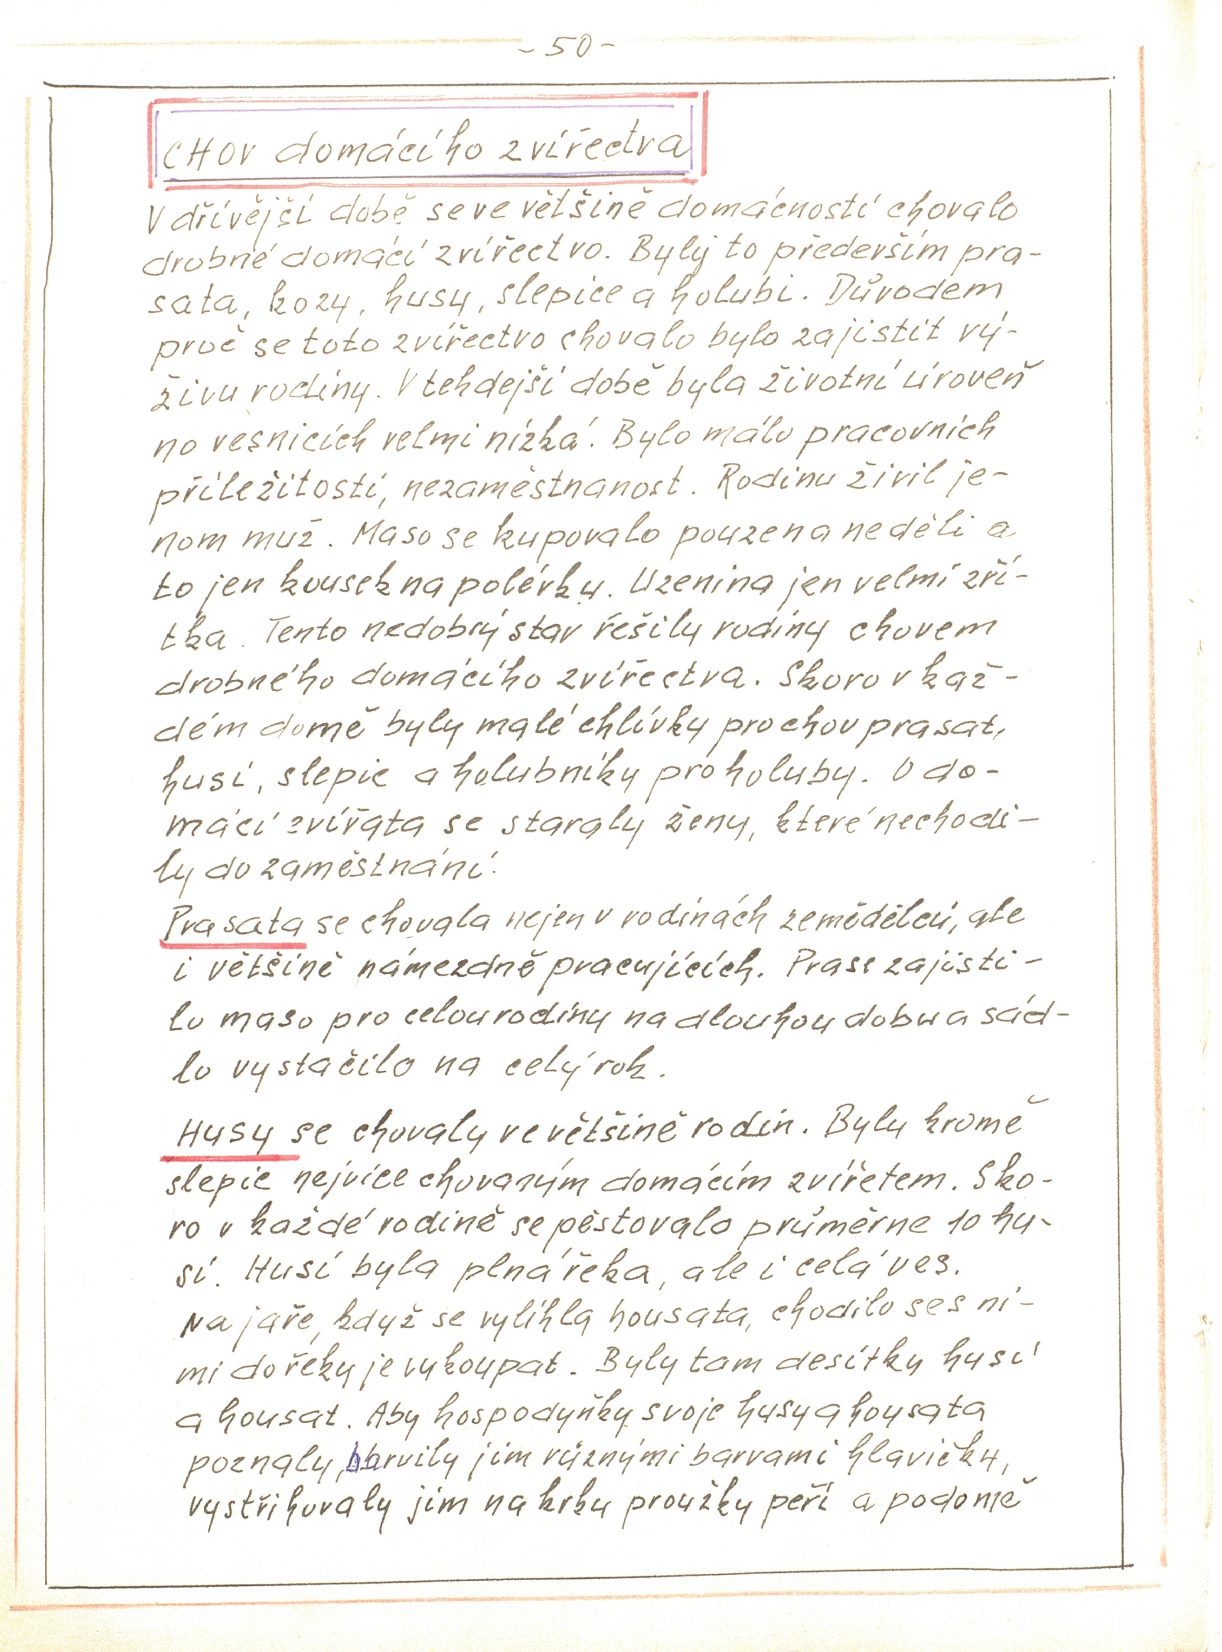 - 50 -
CHOV domácího zvířectva
V dřívější době se ve většině domácností chovalo
drobné domácí zvířectvo. Byly to především pra-
sata, kozy, husy, slepice a holubi. Důvodem
proč se toto zvířectvo chovalo bylo zajistit vý-
živu rodiny. V tehdejší době byla životní úroveň
na vesnicích velmi nízká. Bylo málo pracovních
příležitostí, nezaměstnanost. Rodinu živil je-
nom muž. Maso se kupovalo pouze na neděli a
to jen kousek na polévku. Uzenina jen velmi zří-
tka. Tento nedobrý stav řešily rodiny chovem
drobného domácího zvířectva. Skoro v kaž-
dém domě byly malé chlívky pro chov prasat,
husí, slepic a holubníky pro holuby. O do-
mácí zvířata se staraly ženy, které nechodi-
ly do zaměstnání.
Prasata se chovala nejen v rodinách zemědělců, ale
i většině námezdně pracujících. Prase zajisti-
lo maso pro celou rodinu na dlouhou dobu a sád-
lo vystačilo na celý rok.
Husy se chovaly ve většině rodin. Byly kromě
slepic nejvíce chovaným domácím zvířetem. Sko-
ro v každé rodině se pěstovalo průměrne 10 hu-
sí. Husí byla plná řeka, ale i celá ves.
Na jaře, když se vylíhla housata, chodilo se s ni-
mi do řeky je vykoupat. Byly tam desítky husí
a housat. Aby hospodyňky svoje husy a housata
poznaly, barvily jim různými barvami hlavičky,
vystřihovaly jim na krku proužky peří a podomě